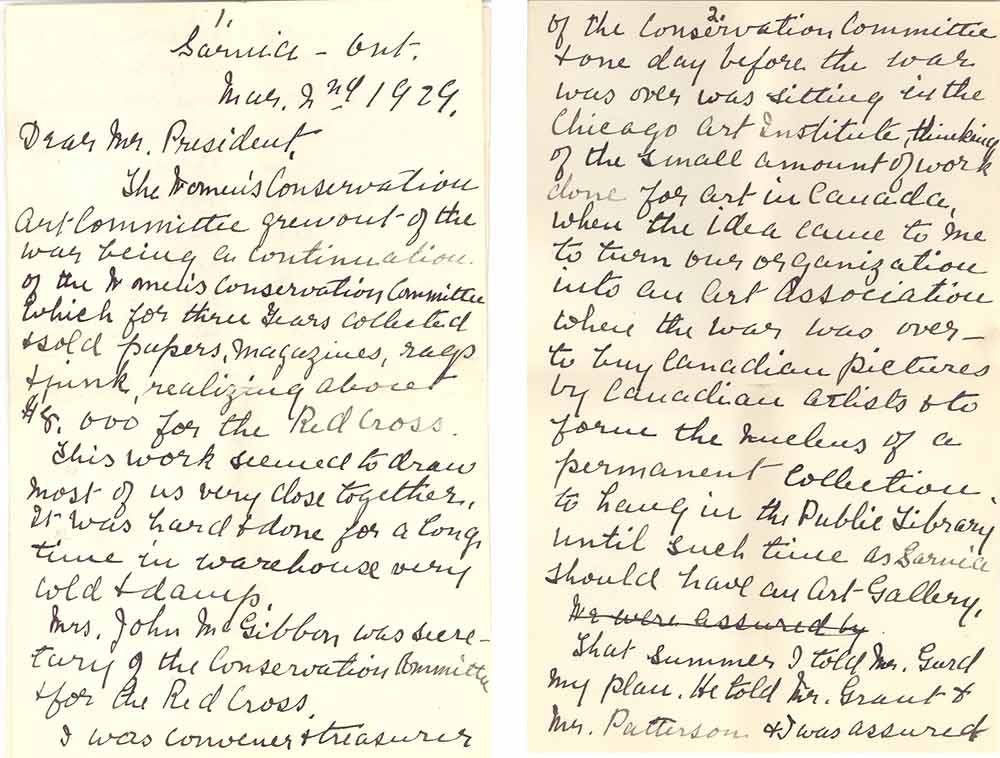 1.
Sarnia - Ont.
Mar. 2nd 1929.
Dear Mr. President,
The Women's Conservation
Art Committee grew out of the
war being a continuation
of the Women's Conservation Committee
which for three years collected
& sold papers, magazines, rags
& junk, realizing about
$8.000 for the Red Cross.
This work seemed to draw
most of us very close together.
It was hard & done for a long
time in warehouse very
cold & damp
Mrs. John McGibbon was secre-
tary of the Conservation Committee
& for the Red Cross.
I was convener & treasurer
2.
of the Conservation Committee
& one day before the war
was over was sitting in the
Chicago Art Institute, thinking
of the small amount of work
done for art in Canada,
when the idea came to me
to turn our organization
into an Art Association
when the war was over-
to buy Canadian pictures
by Canadian artists & to
form the nucleus of a
permanent Collection.
to hang in the Public Library
until such time as Sarnia
should have an Art Gallery.
We were assured by
That summer I told Mr. Gurd
my plan. He told Mr. Grant &
Mr. Patterson & I was assured